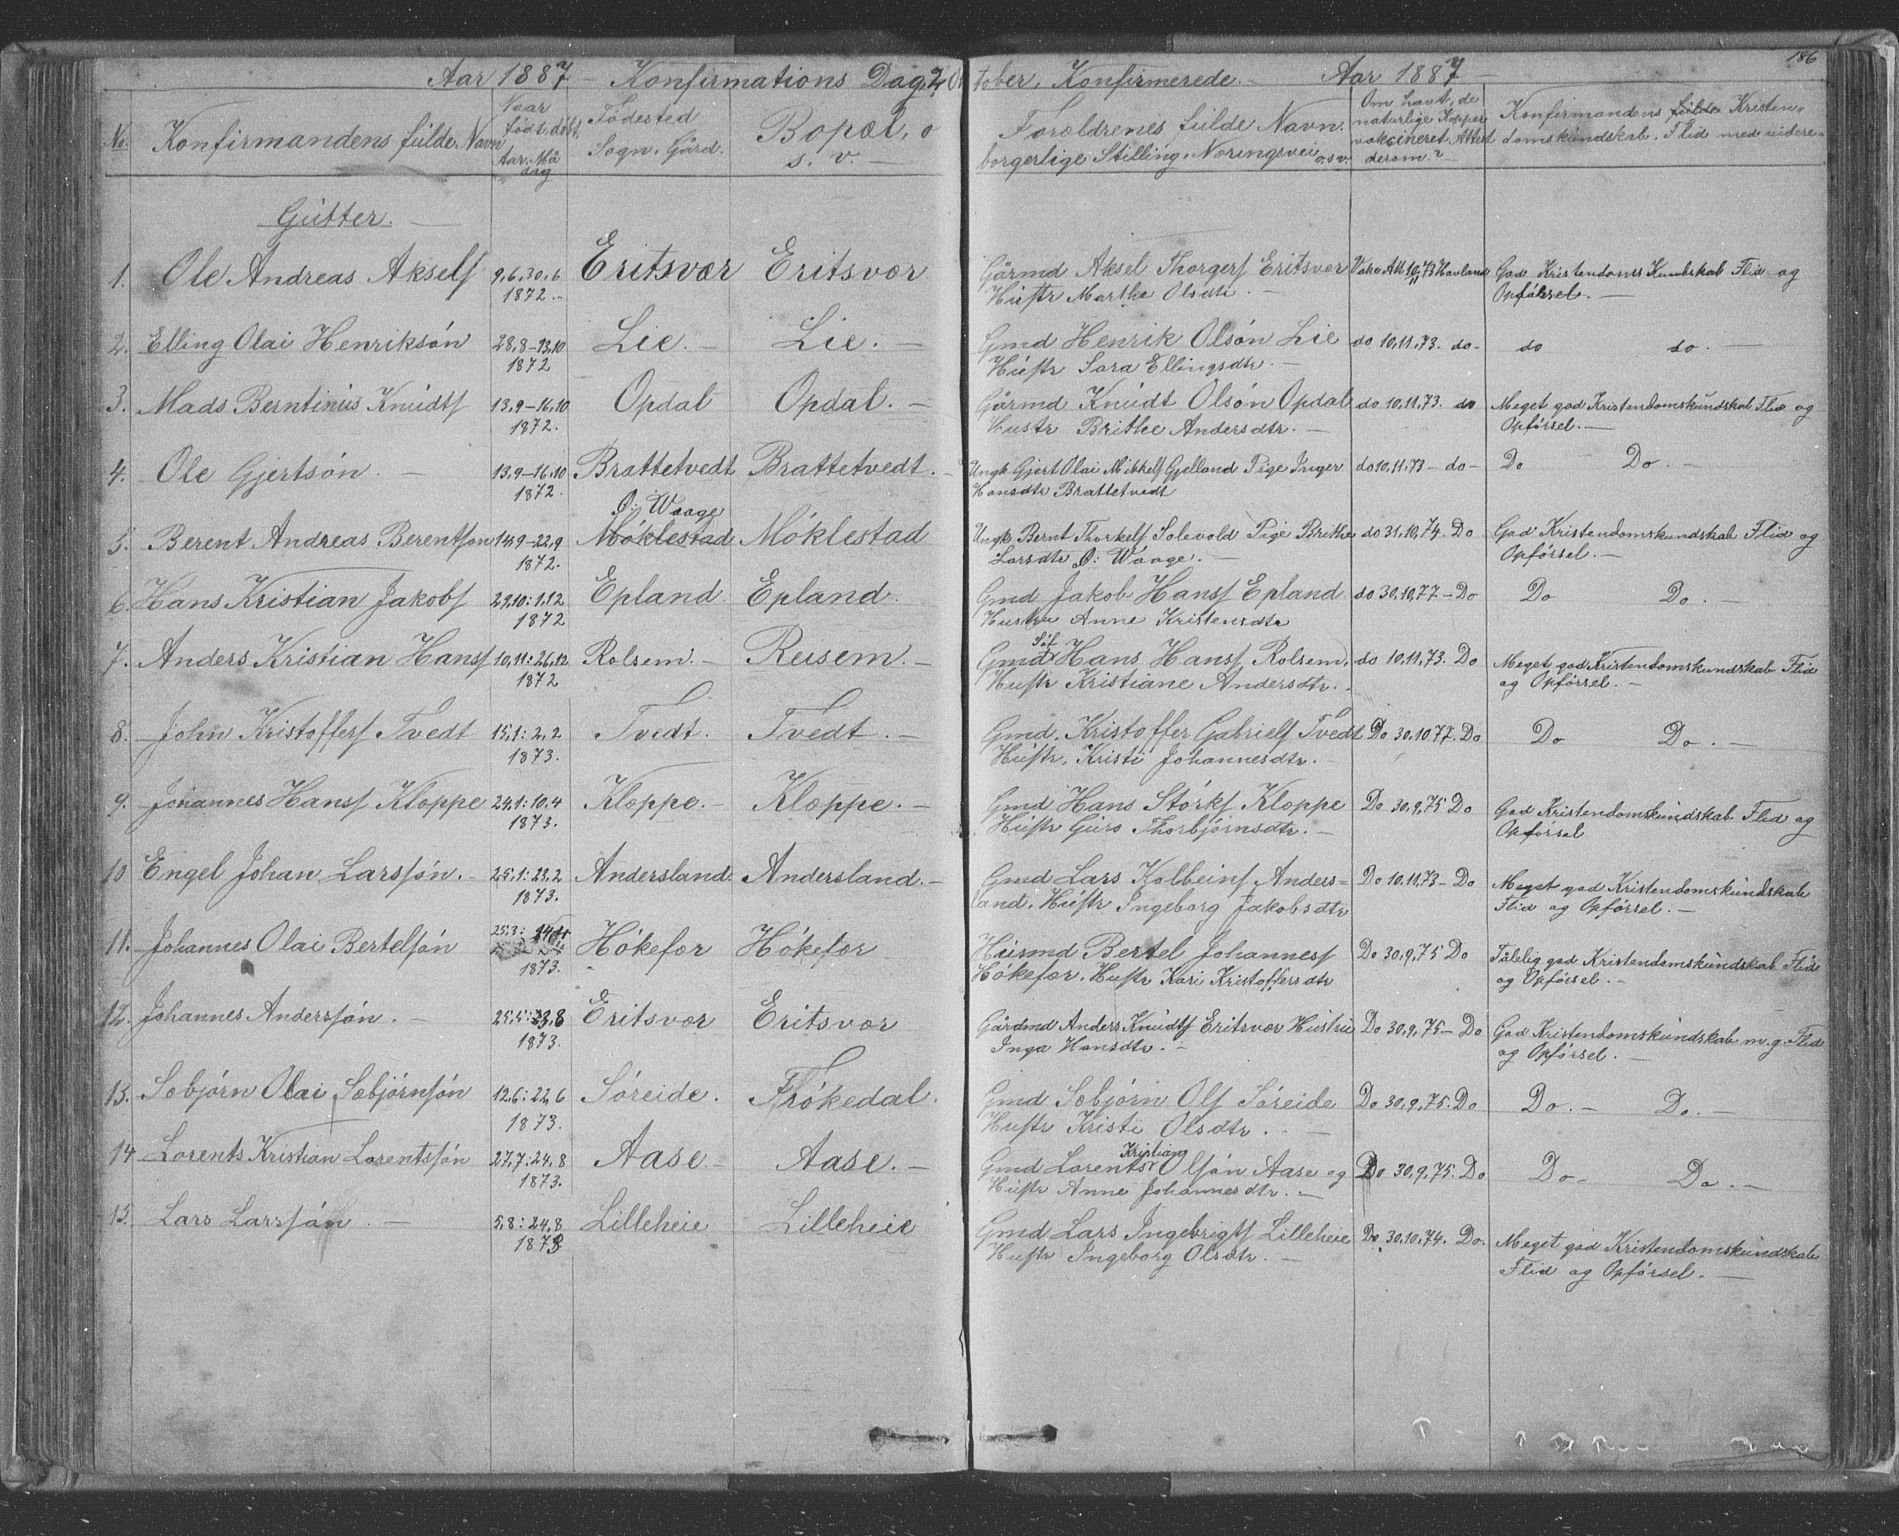 186
Aar 1887 – Konfirmations Dag 2 Oktober. Konfirmerede. – Aar 1887 –
No. Konfirmandens fulde Navn
Naar født, døbt, Aar. Må dag
Fødested Sogn. Gård.
Bopæl, o s. v. –
Forældrenes fulde Navn. borgerlige Stilling, Næringsvei o.s.v.
Om havt, de naturlige Kopper vakcineret Attest derom?
Konfirmandens fulde Kristendomskundskab, Flid med videre
Gutter. –
1. Ole Andreas Akself 9,6,30,6 1872. – Eritsvær Eritsvær Gårmd Aksel Thorgerf Eritsvær Hustr Marthe Olsdtr – Vakc Att 10,11,73 Havland God Kristendoms Kundskab Flid og Opførsel. –
2. Elling Olai Henriksøn 28,8–13,10 1872 Lie. – Lie. – Gmd Henrik Olsøn Lie Hustr Sara Ellingsdtr. – do 10,11,73. do– do do. –
3. Mads Berntinus Knudtf 13,9–16,10 1872. Opdal Opdal. – Gårmd Knudt Olsøn Opdal Hustr Brithe Andersdtr. – do 10,11,73. do Meget god Kristendomskundskab Flid og Opførsel. –
4. Ole Gjertsøn. – 13,9–16,10 1872. Brattetvedt Brattetvedt. – Ungk Gjert Olai Mikkelf Gjelland Pige Inger Hansdtr Brattetvedt do 10,11,73 – do– Do Do. –
5. Berent Andreas Berentsøn 14,9–22,9 1872. Ø: Waage Møklestad Møklestad Ungk Bernt Thorkelf Solevold Pige Brithe Larsdtr Ø: Waage. – do 31,10,74. Do God Kristendomskundskab Flid og Opførsel. –
6. Hans Kristian Jakobf 29,10:1,12 1872 Epland Epland. Gmd Jakob Hansf Epland Hustru Anne Kristensdtr do 30,10,77 – Do Do Do. –
7. Anders Kristian Hansf 10,11:26,12 1872 Rolsem. – Reisem. – Gmd Hans Hansf Rolsem, Hustr Kristiane Andersdtr. do 10,11,73. Do Meget god Kristendomskundskab Flid og Opførsel. –
8. John Kristofferf Tvedt 15,1:2,2 1873. Tvedt. Tvedt. – Gmd. Kristoffer Gabrielf Tvedt Hustr, Kristi Johannesdtr. – Do 30.10 77. Do Do Do. –
9. Johannes Hansf Kloppe 24,1:10,4 1873. Kloppe. – Kloppe. – Gmd Hans Størkf Kloppe Hustr Guro Thorbjørnsdtr. – Do 30,9,75 Do God Kristendomskundskab Flid og Opførsel
10 Engel Johan Larssøn. – 25,1:23,2 1873. Andersland. Andersland. – Gmd Lars Kolbeinf Andersland. Hustr Ingeborg Jakobsdtr Do 10,11,73– Do Meget god Kristendomskundskab Flid og Opførsel. –
11. Johannes Olai Bertelsøn 25,3: 1873. Høkefor Høkefor Husmd Bertel Johannesf Høkefor. Hustr Kari Kristoffersdtr Do 30,9,75 Do Tålelig god Kristendomskundskab Flid og Opførsel. –
12. Johannes Anderssøn. – 25,5:23,8 1873. Eritsvær Eritsvær Gårdmd Anders Knudtf Eritsvær Hustru Inga Hansdtr. – Do 30,9,75– Do God Kristendomskundskab m. g. Flid og Opførsel. –
13. Sæbjørn Olai Sæbjørnsøn 12,6:22,6 1873. Søreide. Frøkedal. Gmd Sæbjørn Olf Søreide Hustr Kristi Olsdtr. – Do 30,9,75. Do Do. – Do. –
14 Lorents Kristian Lorentssøn 27,7:24,8 1873. Aase. – Aase. – Gmd Lorents Kristian Olsøn Aase og Hustr Anne Johannesdtr. – Do 30,9,75. Do Do– Do. –
15. Lars Larssøn. – 5,8:24,8 1873 Lilleheie Lilleheie Gmd Lars Ingebrigtf Lilleheie Hustr Ingeborg Olsdtr. – Do 30,10,74. Do. Meget god Kristendomskundskab Flid og Opførsel. –